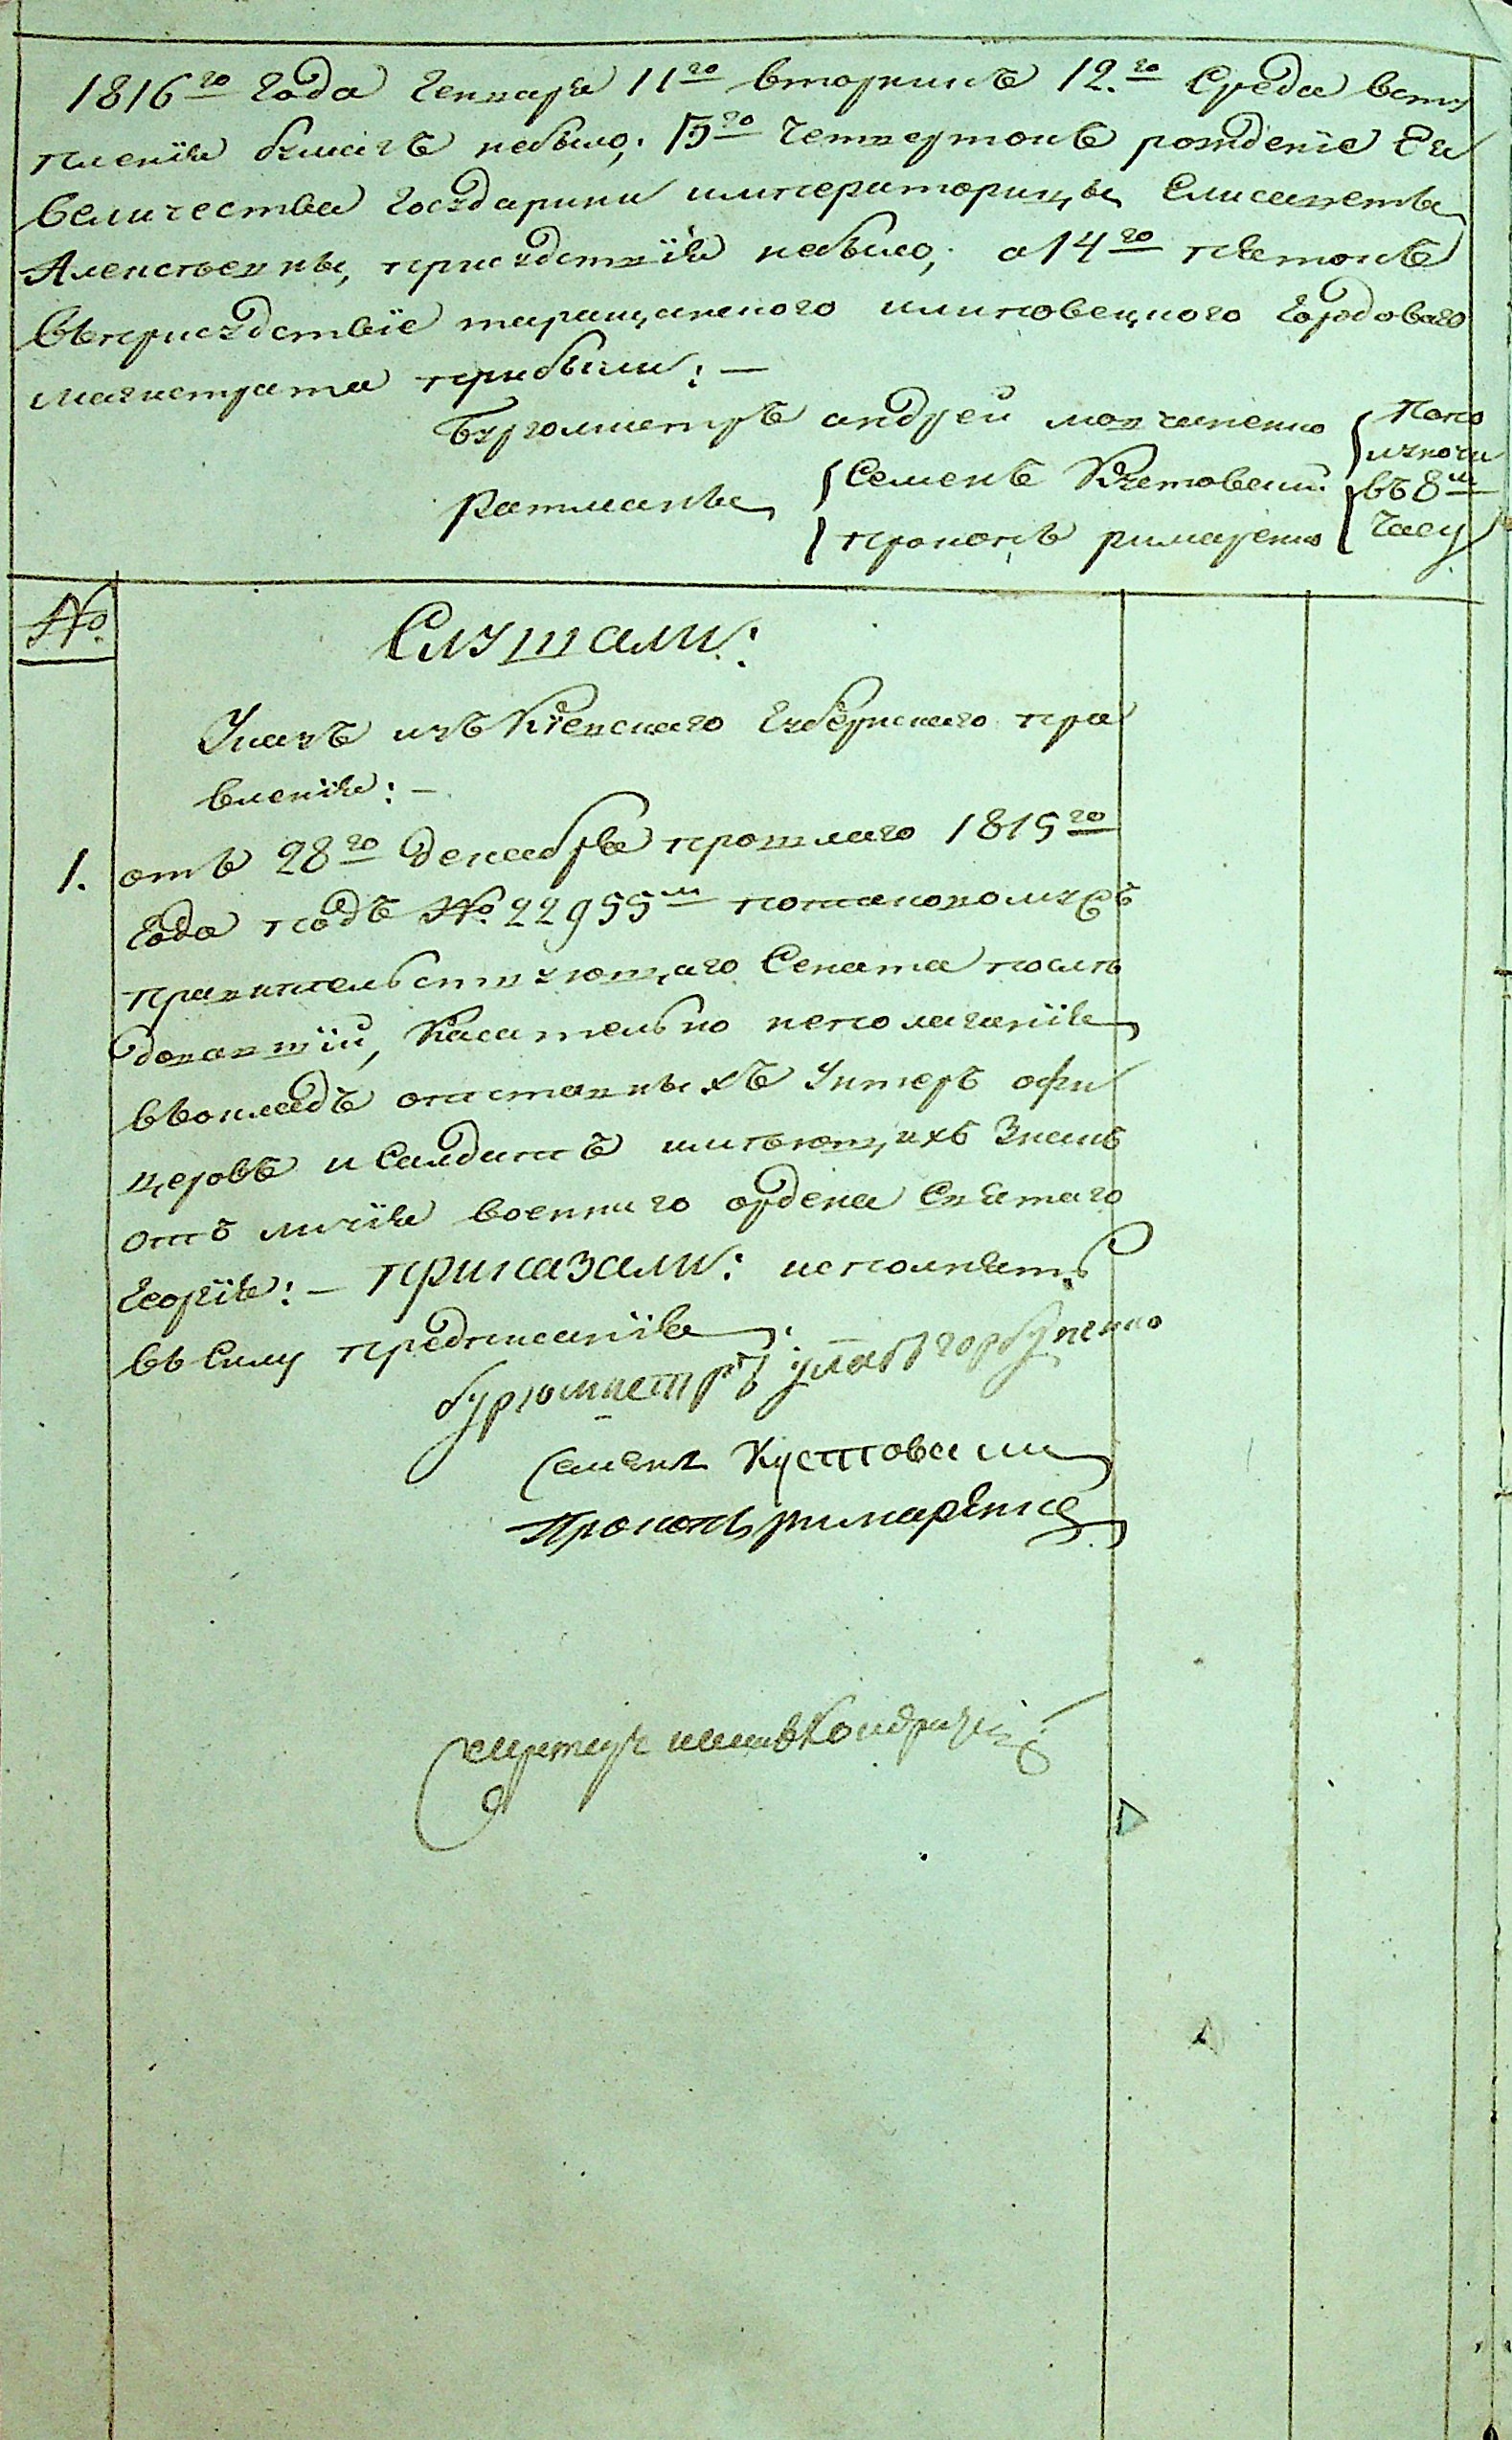 1816го года Генваря 11го вторникъ 12.го Среда всту
пленія бумагъ небыло; 13го четвертокъ рожденіе Ея
Величества Государини императорицы Елисаветы
Алексѣевны, присудствія небыло; а 14го пятокъ
въ присудствіе таращанского илиповецкого городоваго
магистрата прибыли: —
Бургомистръ андрей
Ратманы
Семенъ Кустовский
прокопъ римаренко
По по
луночи
въ 8м
часу
№
Слушали:
Указъ изъ Кіевскаго Губернскаго пра
вленія: —
1. отъ 28го декабря прошлаго 1815го
года подъ № 22955м потаковомужъ
правительствующаго Сената послѣ
довавшій, Касательно неполаганія
въокладъ отставныхъ Унтеръ офи
церовъ и Салдатъ имѣющихъ Знакъ
отъ личія военнаго ордена Святаго
Георгія: — приказали: исполнять
въ Силу предписанія.
бургомистръ горбуненко
Семенъ Кустовски
Прокопъ римаренко